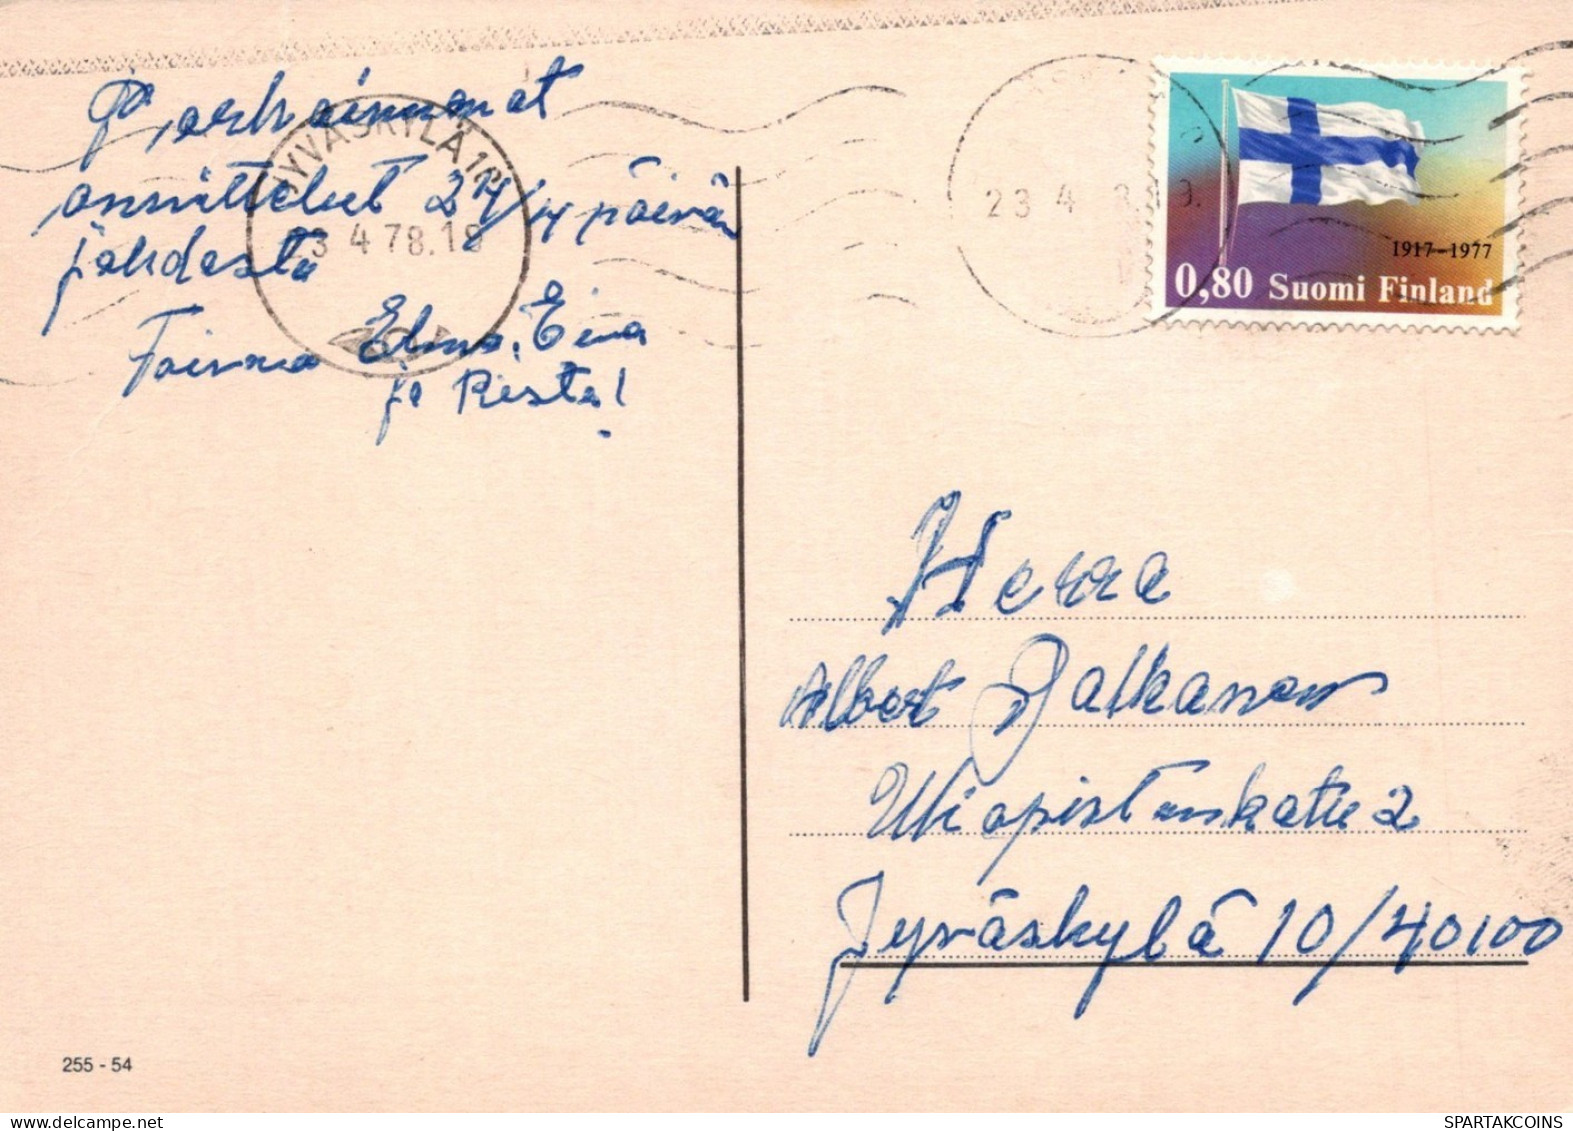 Parhaimmat
onnittelut 24/4 päivän
johdosta
Toivoo Elma, Eina
ja Risto!
JYVÄSKYLÄ 10
23 4 78.18
23 4
1917-1977
0,80 Suomi Finland
Herra
Albert Jalkanen
Yliopistonkatu 2
Jyväskylä 10/40100
255 - 54
SPARTAKCOINS